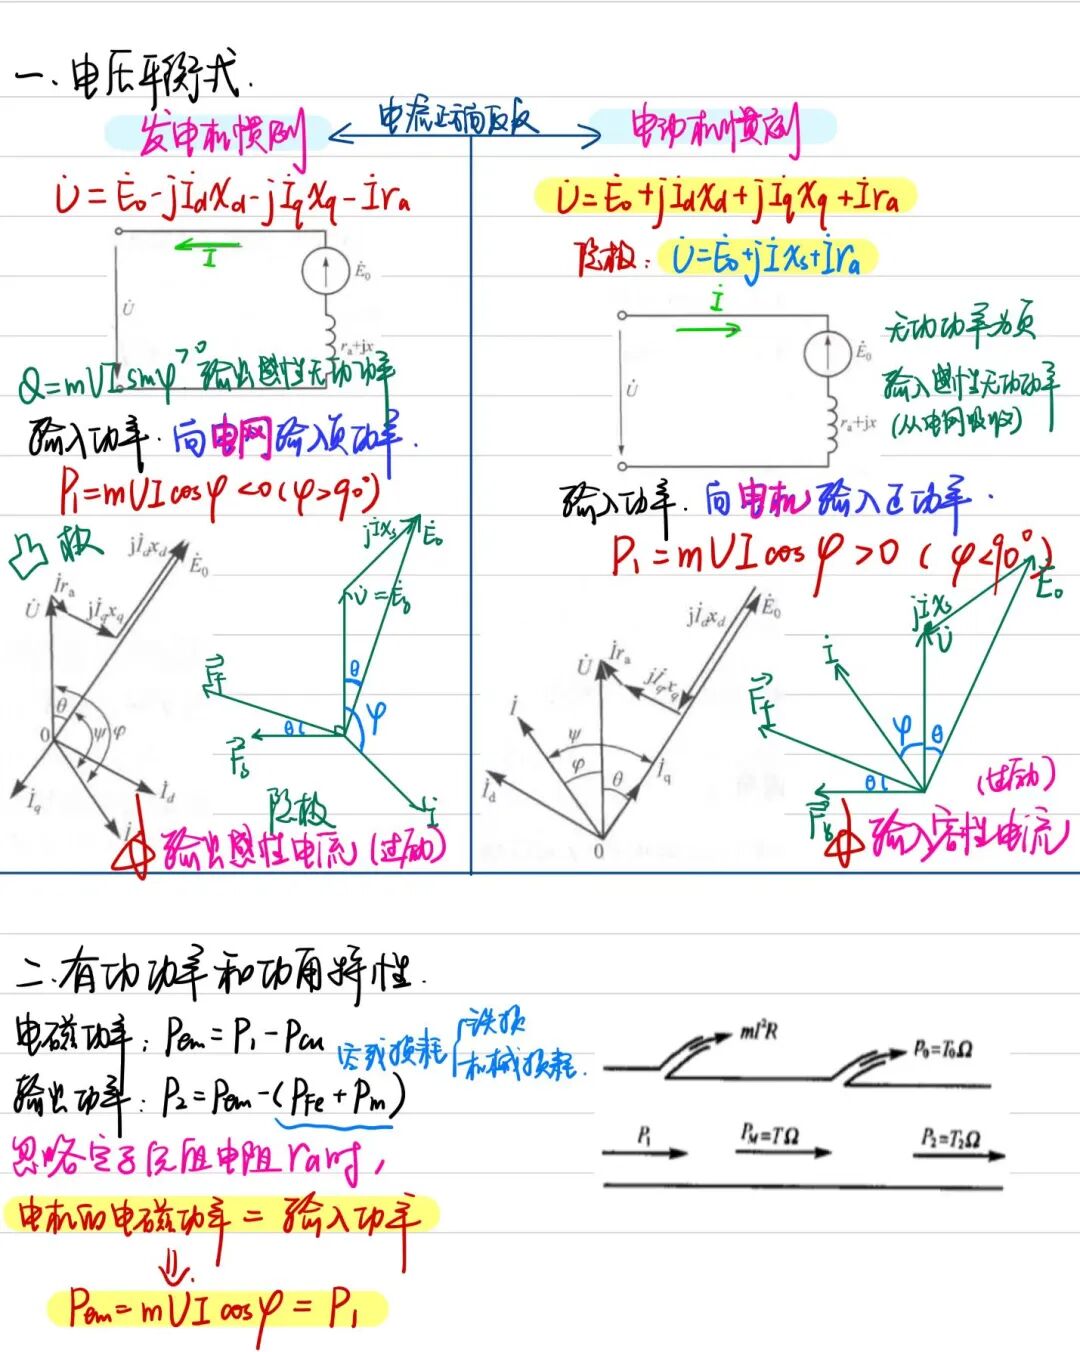 一.电压平衡式.
电流正方向反设
发电机惯例
U̇=Ė₀-jİdXd-jİqXq-İra
I
U̇
Ė₀
ra+jx
Q=mUIsinφ>0 输出感性无功功率
输入功率.向电网输入负功率.
P₁=mUIcosφ<0(φ>90°)
凸极
jİdxd
Ė₀
İra
U̇
jİqxq
θ
0
ψ
φ
İq
İd
İ
jİxs
Ė₀
θ
φ
θ
İ
隐极
输出感性电流(过励)
电动机惯例
U̇=Ė₀+jİdXd+jİqXq+İra
隐极:U̇=Ė₀+jİXs+İra
İ
U̇
Ė₀
ra+jx
无功功率为负
输入感性无功功率
(从电网吸收)
输入功率.向电机输入正功率.
P₁=mUIcosφ>0(φ<90°)
jİdxd
Ė₀
İra
U̇
jİqxq
İ
ψ
φ
θ
İq
İd
0
jİxs
Ė₀
U̇
İ
φ
θ
θ
(过励)
输入容性电流
二.有功功率和功角特性.
电磁功率:Pem=P₁-Pcu
空载损耗
铁损
机械损耗.
输出功率:P₂=Pem-(PFe+Pm)
忽略定子侧电阻ra时,
电机的电磁功率=输入功率
⇓
Pem=mUIcosφ=P₁
mI²R
P₀=T₀Ω
P₁
PM=TΩ
P₂=T₂Ω